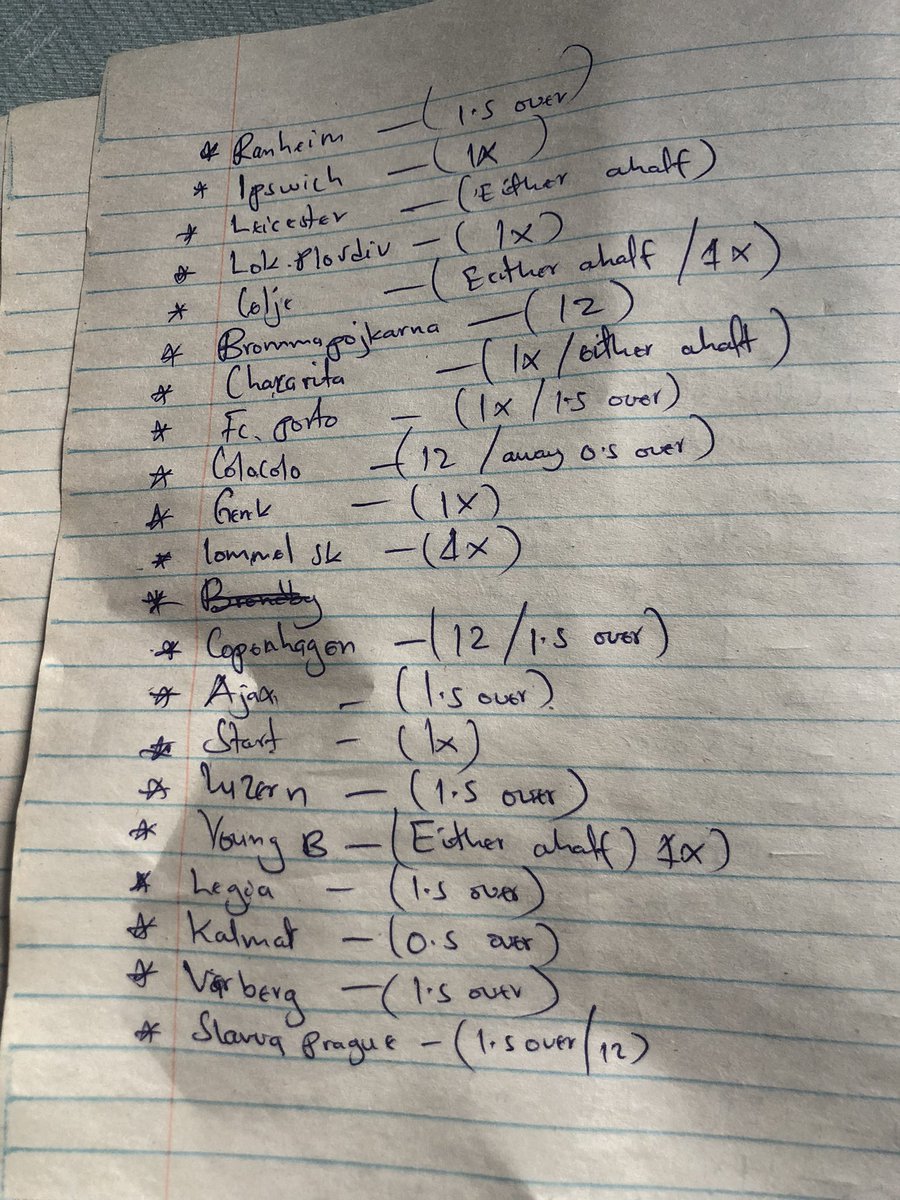 * Ranheim - (1.5 over)
* Ipswich - (1X)
* Leicester - (Either ahalf)
* Lok. Plovdiv - (1x)
* Celje - (Eeither ahalf / 1x)
* Brommapojkarna - (12)
* Chakarita - (1x / either ahalf)
* Fc. porto - (1x / 1.5 over)
* Colacolo - (12 / away 0.5 over)
* Genk - (1x)
* lommel sk - (1x)
* Brondby
* Copenhagen - (12 / 1.5 over)
* Ajax - (1.5 over)
* Start - (1x)
* Luzern - (1.5 over)
* Young B - (Either ahalf) 1x)
* Legia - (1.5 over)
* Kalmat - (0.5 over)
* Varberg - (1.5 over)
* Slavia prague - (1.5 over / 12)